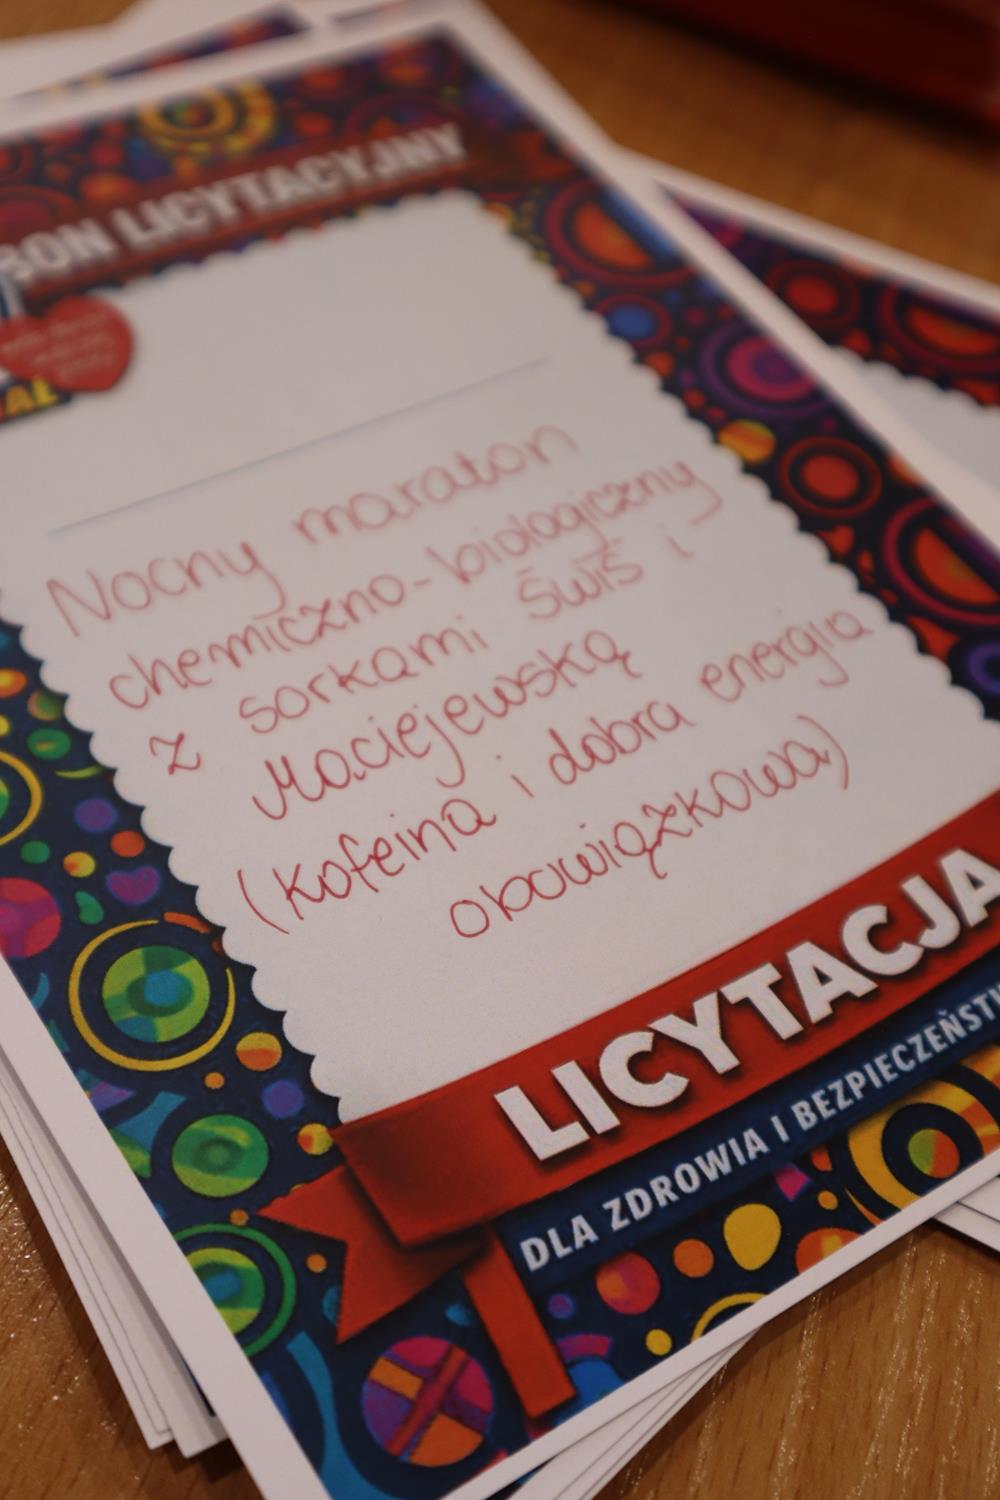 BON LICYTACYJNY
AŁ
Nocny maraton
chemiczno-biologiczny
z sorkami Świś i
Maciejewską
(kofeina i dobra energia
obowiązkowa)
LICYTACJA
DLA ZDROWIA I BEZPIECZEŃST